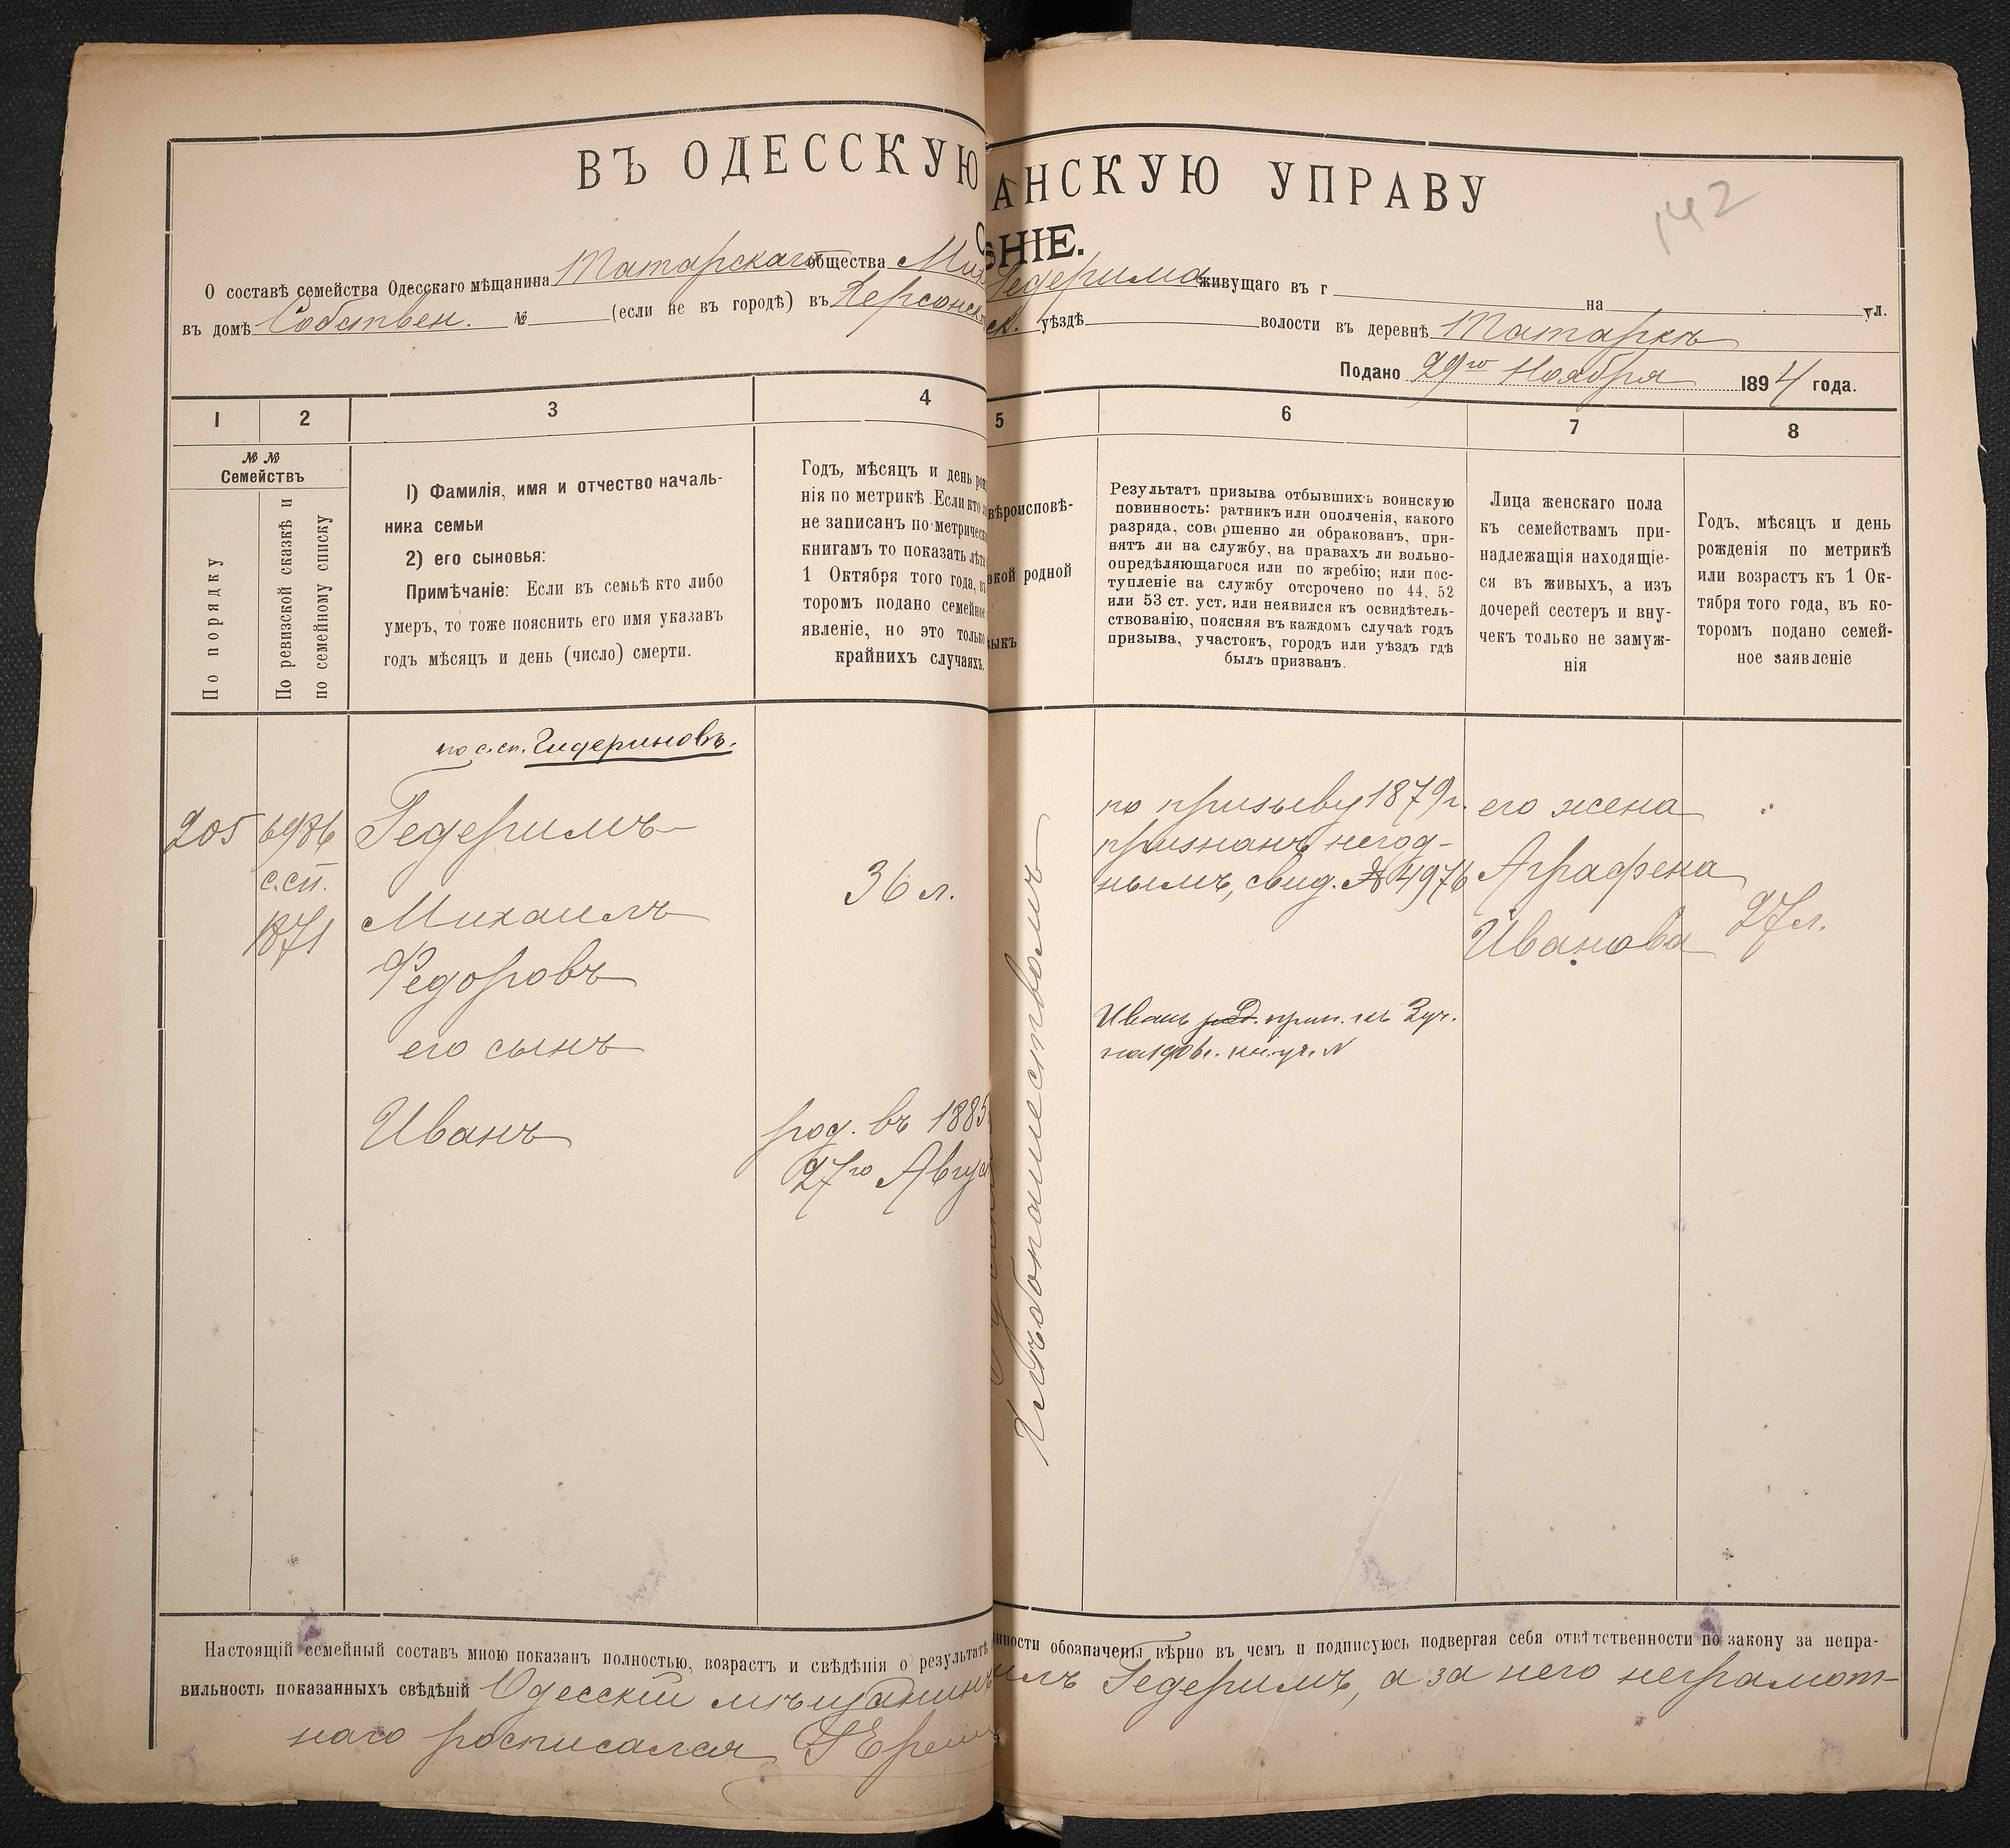 ВЪ ОДЕССКУЮ АНСКУЮ УПРАВУ
142
ЕНІЕ.
О составѣ семейства Одесскаго мѣщанина Татарскаго общества Мих Гедерима живущаго въ г на ул.
въ домѣ Собствен. № (если не въ городѣ) въ Херсонск ск. уѣздѣ волости въ деревнѣ Татаркѣ
Подано 29го Ноября 1894 года.
1 2 3 4 5 6 7 8
№ № Семействъ
По порядку
По ревизской сказкѣ и
по семейному списку
1) Фамилія, имя и отчество началь-
ника семьи
2) его сыновья:
Примѣчаніе: Если въ семьѣ кто либо
умеръ, то тоже пояснить его имя указавъ
годъ мѣсяцъ и день (число) смерти.
Годъ, мѣсяцъ и день рож
нія по метрикѣ. Если кто
не записанъ по метрическ
книгамъ то показать лѣта
1 Октября того года, въ
торомъ подано семейное
явленіе, но это только
крайнихъ случаяхъ.
вѣроисповѣ-
акой родной
зыкъ
Результатъ призыва отбывшихъ воинскую
повинность: ратникъ или ополченія, какого
разряда, совершенно ли обракованъ, при-
нятъ ли на службу, на правахъ ли вольно-
опредѣляющагося или по жребію; или пос-
тупленіе на службу отсрочено по 44, 52
или 53 ст. уст, или неявился къ освидѣтель-
ствованію, поясняя въ каждомъ случаѣ годъ
призыва, участокъ, городъ или уѣздъ гдѣ
былъ призванъ.
Лица женскаго пола
къ семействамъ при-
надлежащія находящіе-
ся въ живыхъ, а изъ
дочерей сестеръ и вну-
чекъ только не замуж-
нія
Годъ, мѣсяцъ и день
рожденія по метрикѣ
или возрастъ къ 1 Ок-
тября того года, въ ко-
торомъ подано семей-
ное заявленіе
по с. сп. Гидериновъ.
205
6986
с. сп.
1871
Гедеримъ
Михаилъ
Федоровъ
его сынъ
Иванъ
36 л.
род. въ 1885
27го Август
Хлѣбопашествомъ
по призыву 1879 г.
признанъ негод-
нымъ, свид. № 4976
Иванъ род. прип. къ 3 уч.
на 1906 г.
его жена
Аграфена
Иванова
27 л.
Настоящій семейный составъ мною показанъ полностью, возрастъ и свѣдѣнія о результатѣ нности обозначены вѣрно въ чемъ и подписуюсь подвергая себя отвѣтственности по закону за непра-
вильность показанныхъ свѣдѣній Одесскій мѣщанинъ илъ Гедеримъ, а за него неграмот-
наго росписался